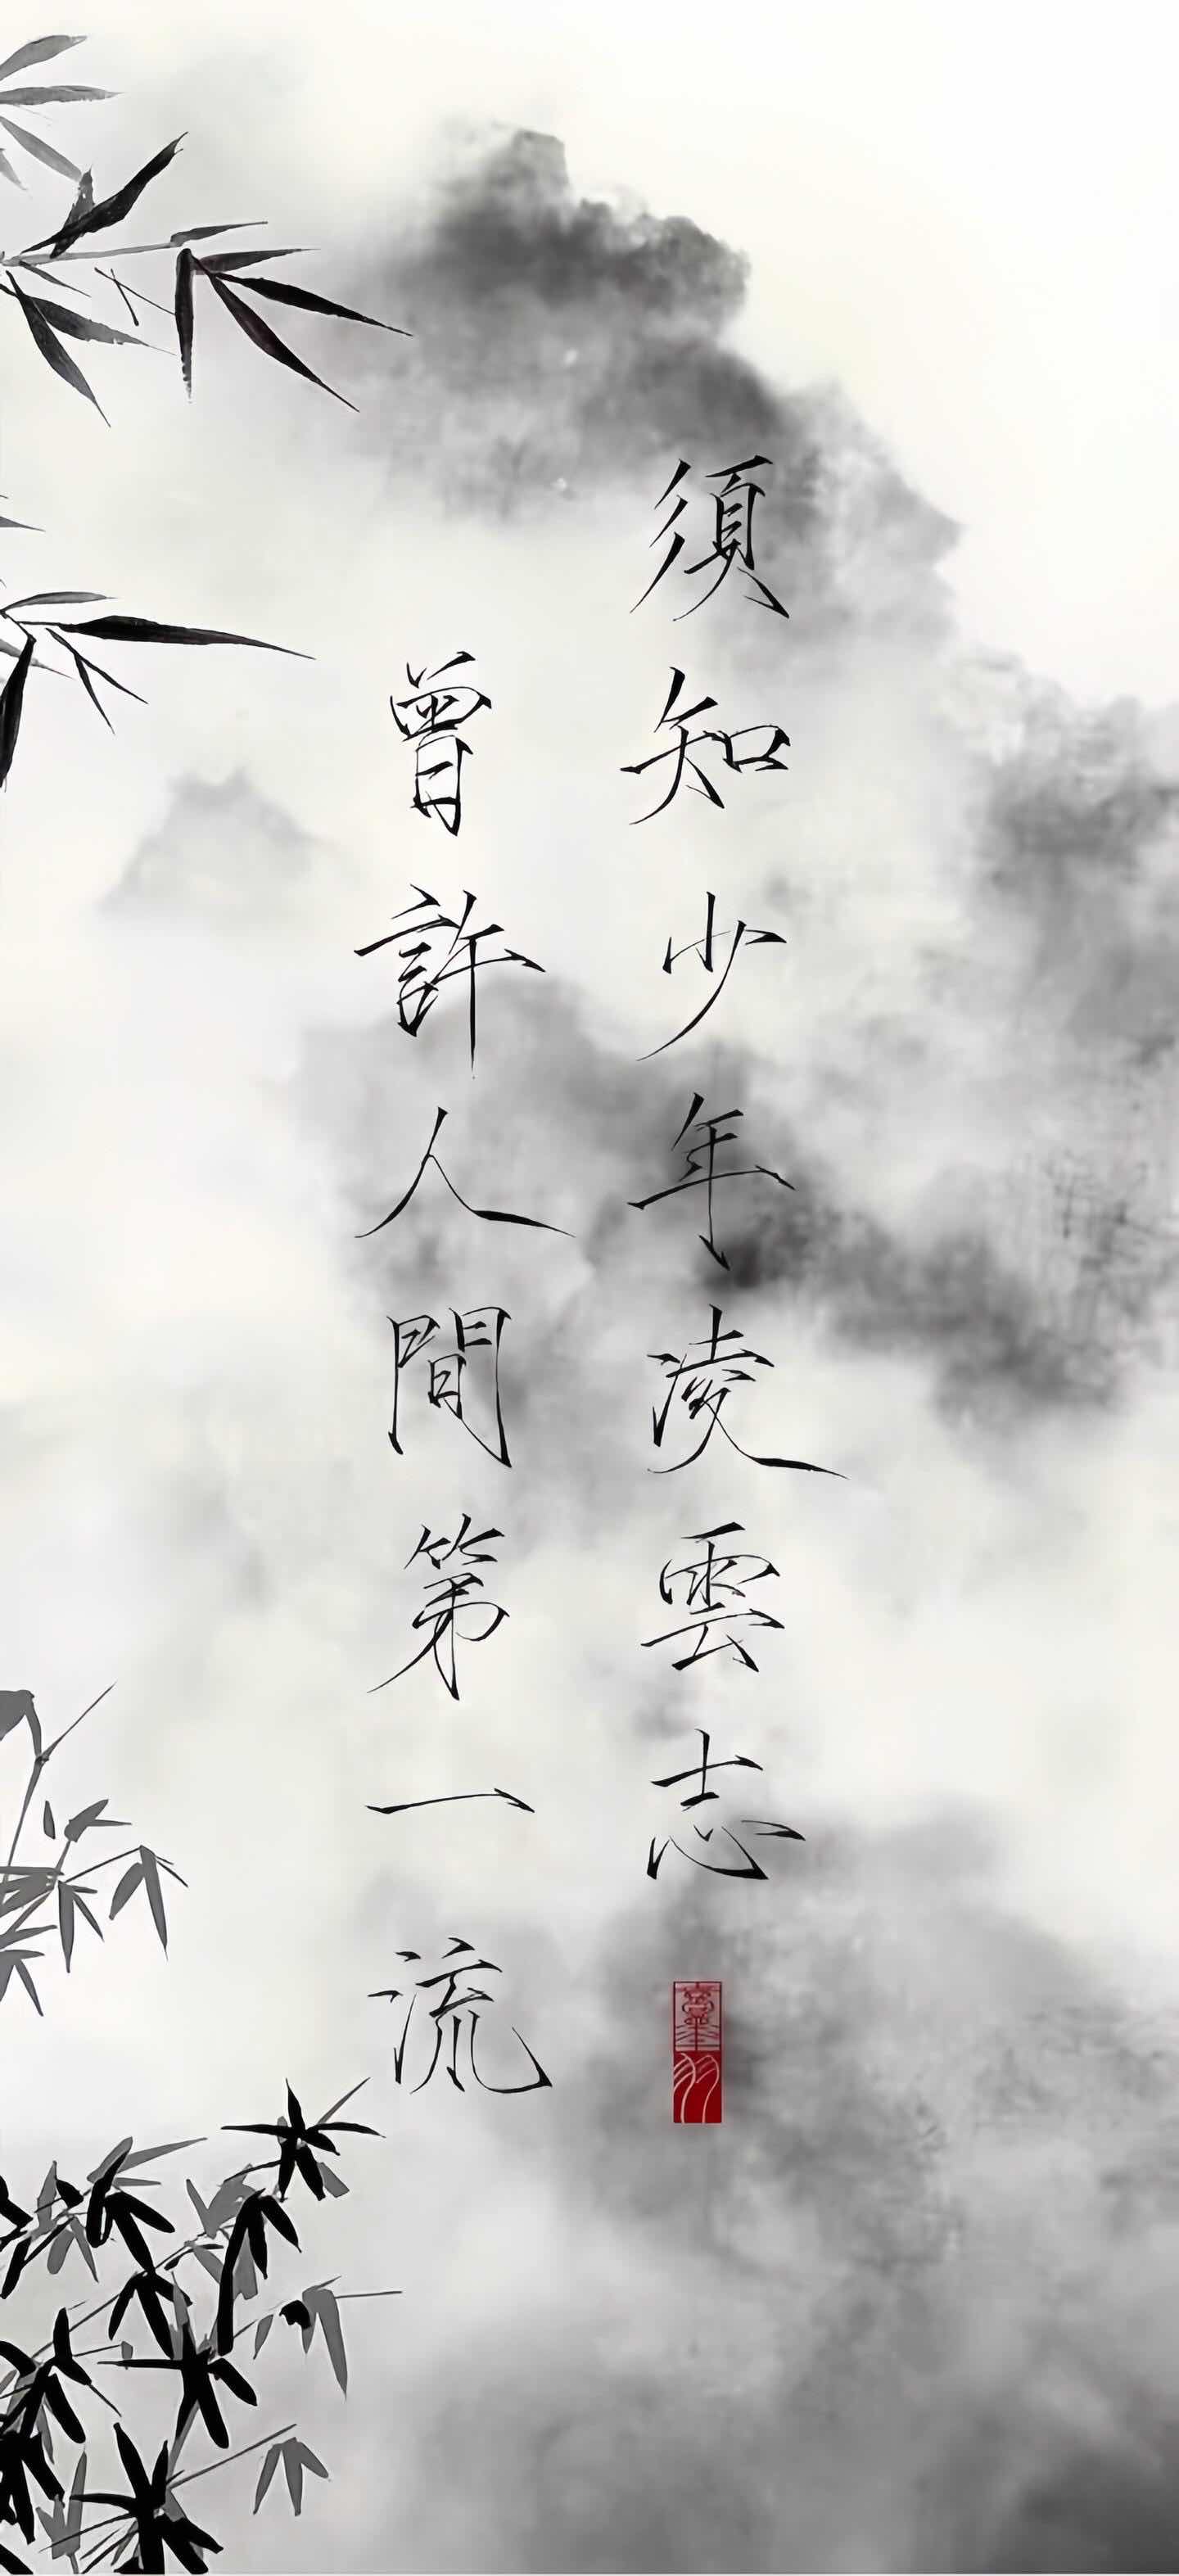 須知少年凌雲志
曾許人間第一流